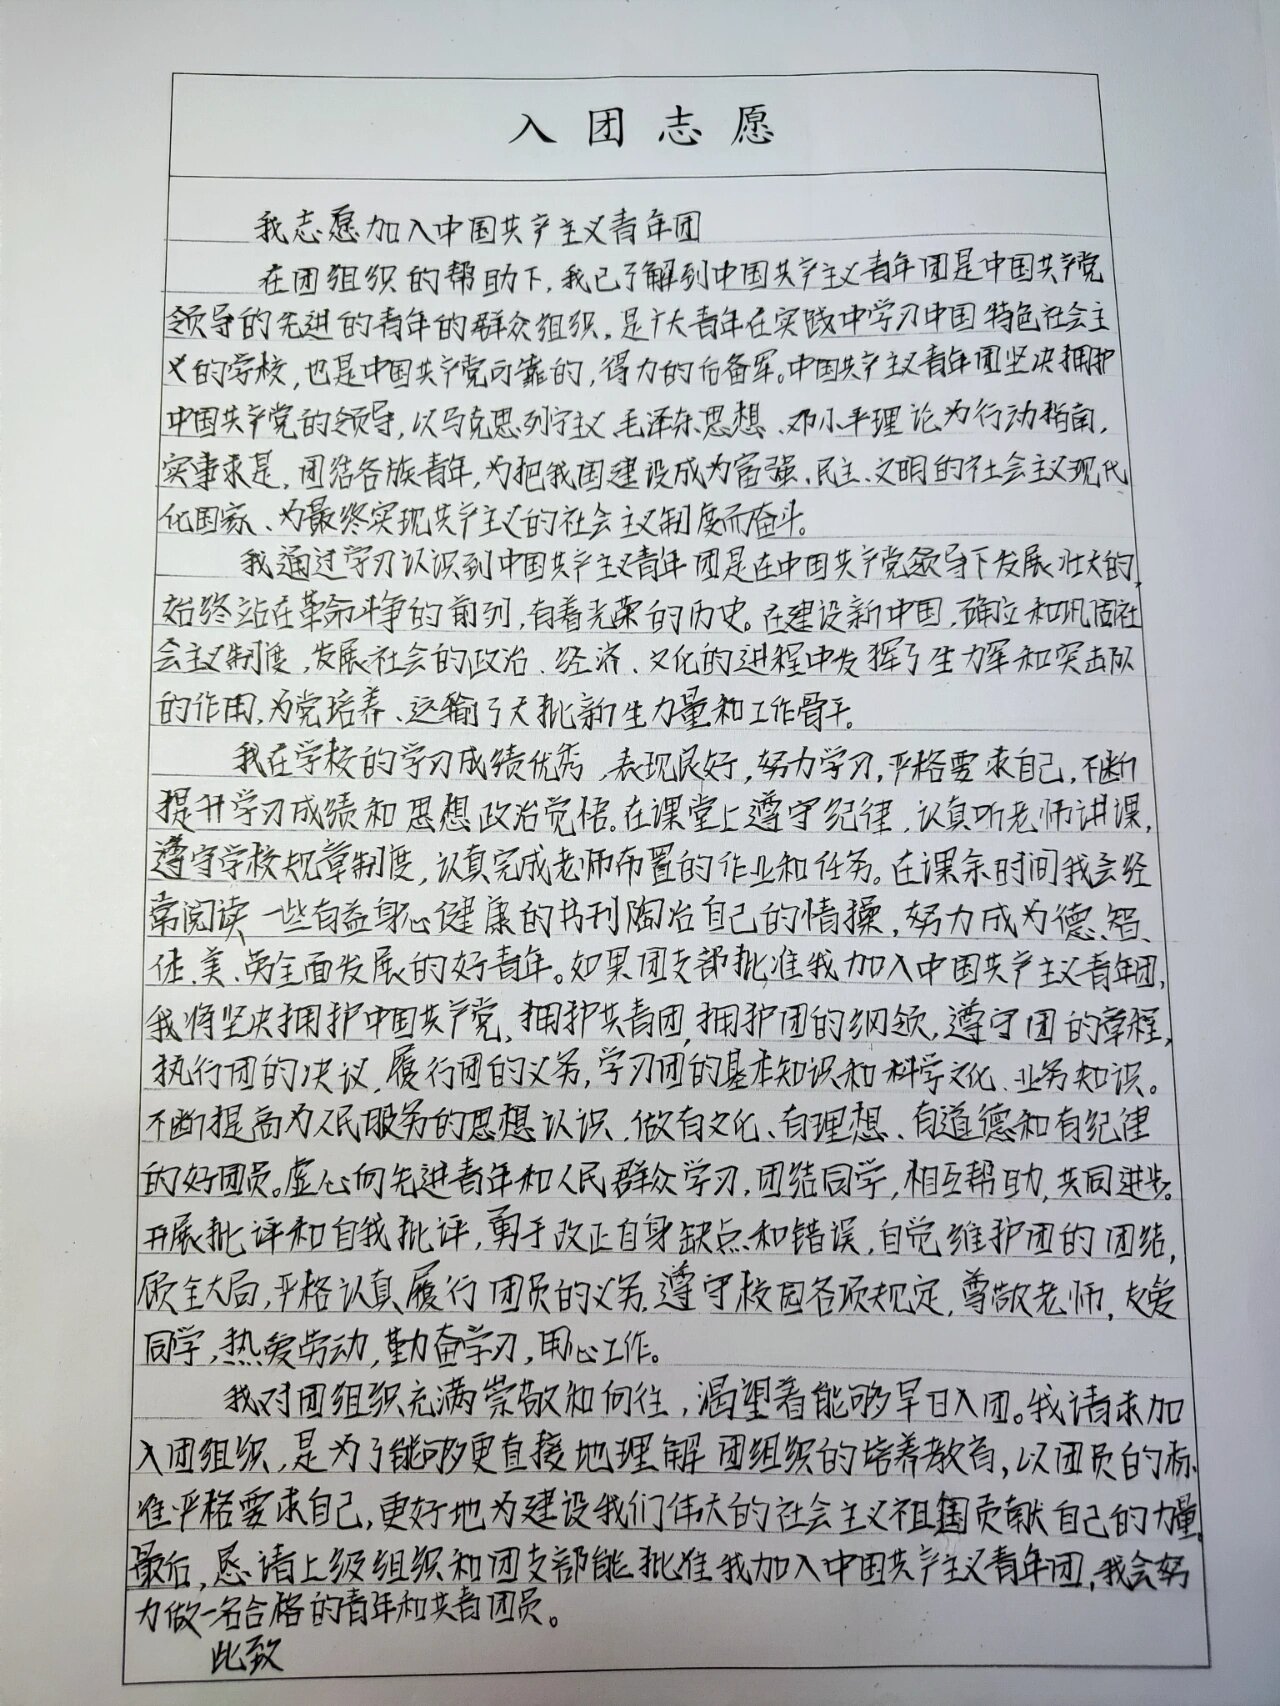 入团志愿
我志愿加入中国共产主义青年团
在团组织的帮助下,我已了解到中国共产主义青年团是中国共产党
领导的先进的青年的群众组织,是广大青年在实践中学习中国特色社会主
义的学校,也是中国共产党可靠的,得力的后备军。中国共产主义青年团坚决拥护
中国共产党的领导,以马克思列宁主义、毛泽东思想、邓小平理论为行动指南,
实事求是,团结各族青年,为把我国建设成为富强、民主、文明的社会主义现代
化国家、为最终实现共产主义的社会主义制度而奋斗。
我通过学习认识到中国共产主义青年团是在中国共产党领导下发展壮大的,
始终站在革命斗争的前列,有着光荣的历史。在建设新中国,确立和巩固社
会主义制度,发展社会的政治、经济、文化的进程中发挥了生力军和突击队
的作用,为党培养、运输了大批新生力量和工作骨干。
我在学校的学习成绩优秀,表现良好,努力学习,严格要求自己,不断
提升学习成绩和思想政治觉悟。在课堂上遵守纪律,认真听老师讲课,
遵守学校规章制度,认真完成老师布置的作业和任务。在课余时间我会经
常阅读一些有益身心健康的书刊陶冶自己的情操,努力成为德、智、
体、美、劳全面发展的好青年。如果团支部批准我加入中国共产主义青年团,
我将坚决拥护中国共产党,拥护共青团,拥护团的纲领,遵守团的章程,
执行团的决议,履行团的义务,学习团的基本知识和科学文化、业务知识。
不断提高为人民服务的思想认识,做有文化、有理想、有道德和有纪律
的好团员。虚心向先进青年和人民群众学习,团结同学,相互帮助,共同进步。
开展批评和自我批评,勇于改正自身缺点和错误,自觉维护团的团结,
顾全大局,严格认真履行团员的义务,遵守校园各项规定,尊敬老师,友爱
同学,热爱劳动,勤奋学习,用心工作。
我对团组织充满崇敬和向往,渴望着能够早日入团。我请求加
入团组织,是为了能够更直接地理解团组织的培养教育,以团员的标
准严格要求自己,更好地为建设我们伟大的社会主义祖国贡献自己的力量。
最后,恳请上级组织和团支部能批准我加入中国共产主义青年团,我会努
力做一名合格的青年和共青团员。
此致